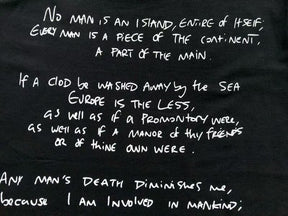 No man is an island, entire of itself;
Every man is a piece of the continent,
a part of the main.
If a clod be washed away by the sea
Europe is the less,
as well as if a promontory were,
as well as if a manor of thy friends
or of thine own were.
Any man's death diminishes me,
because I am involved in mankind;